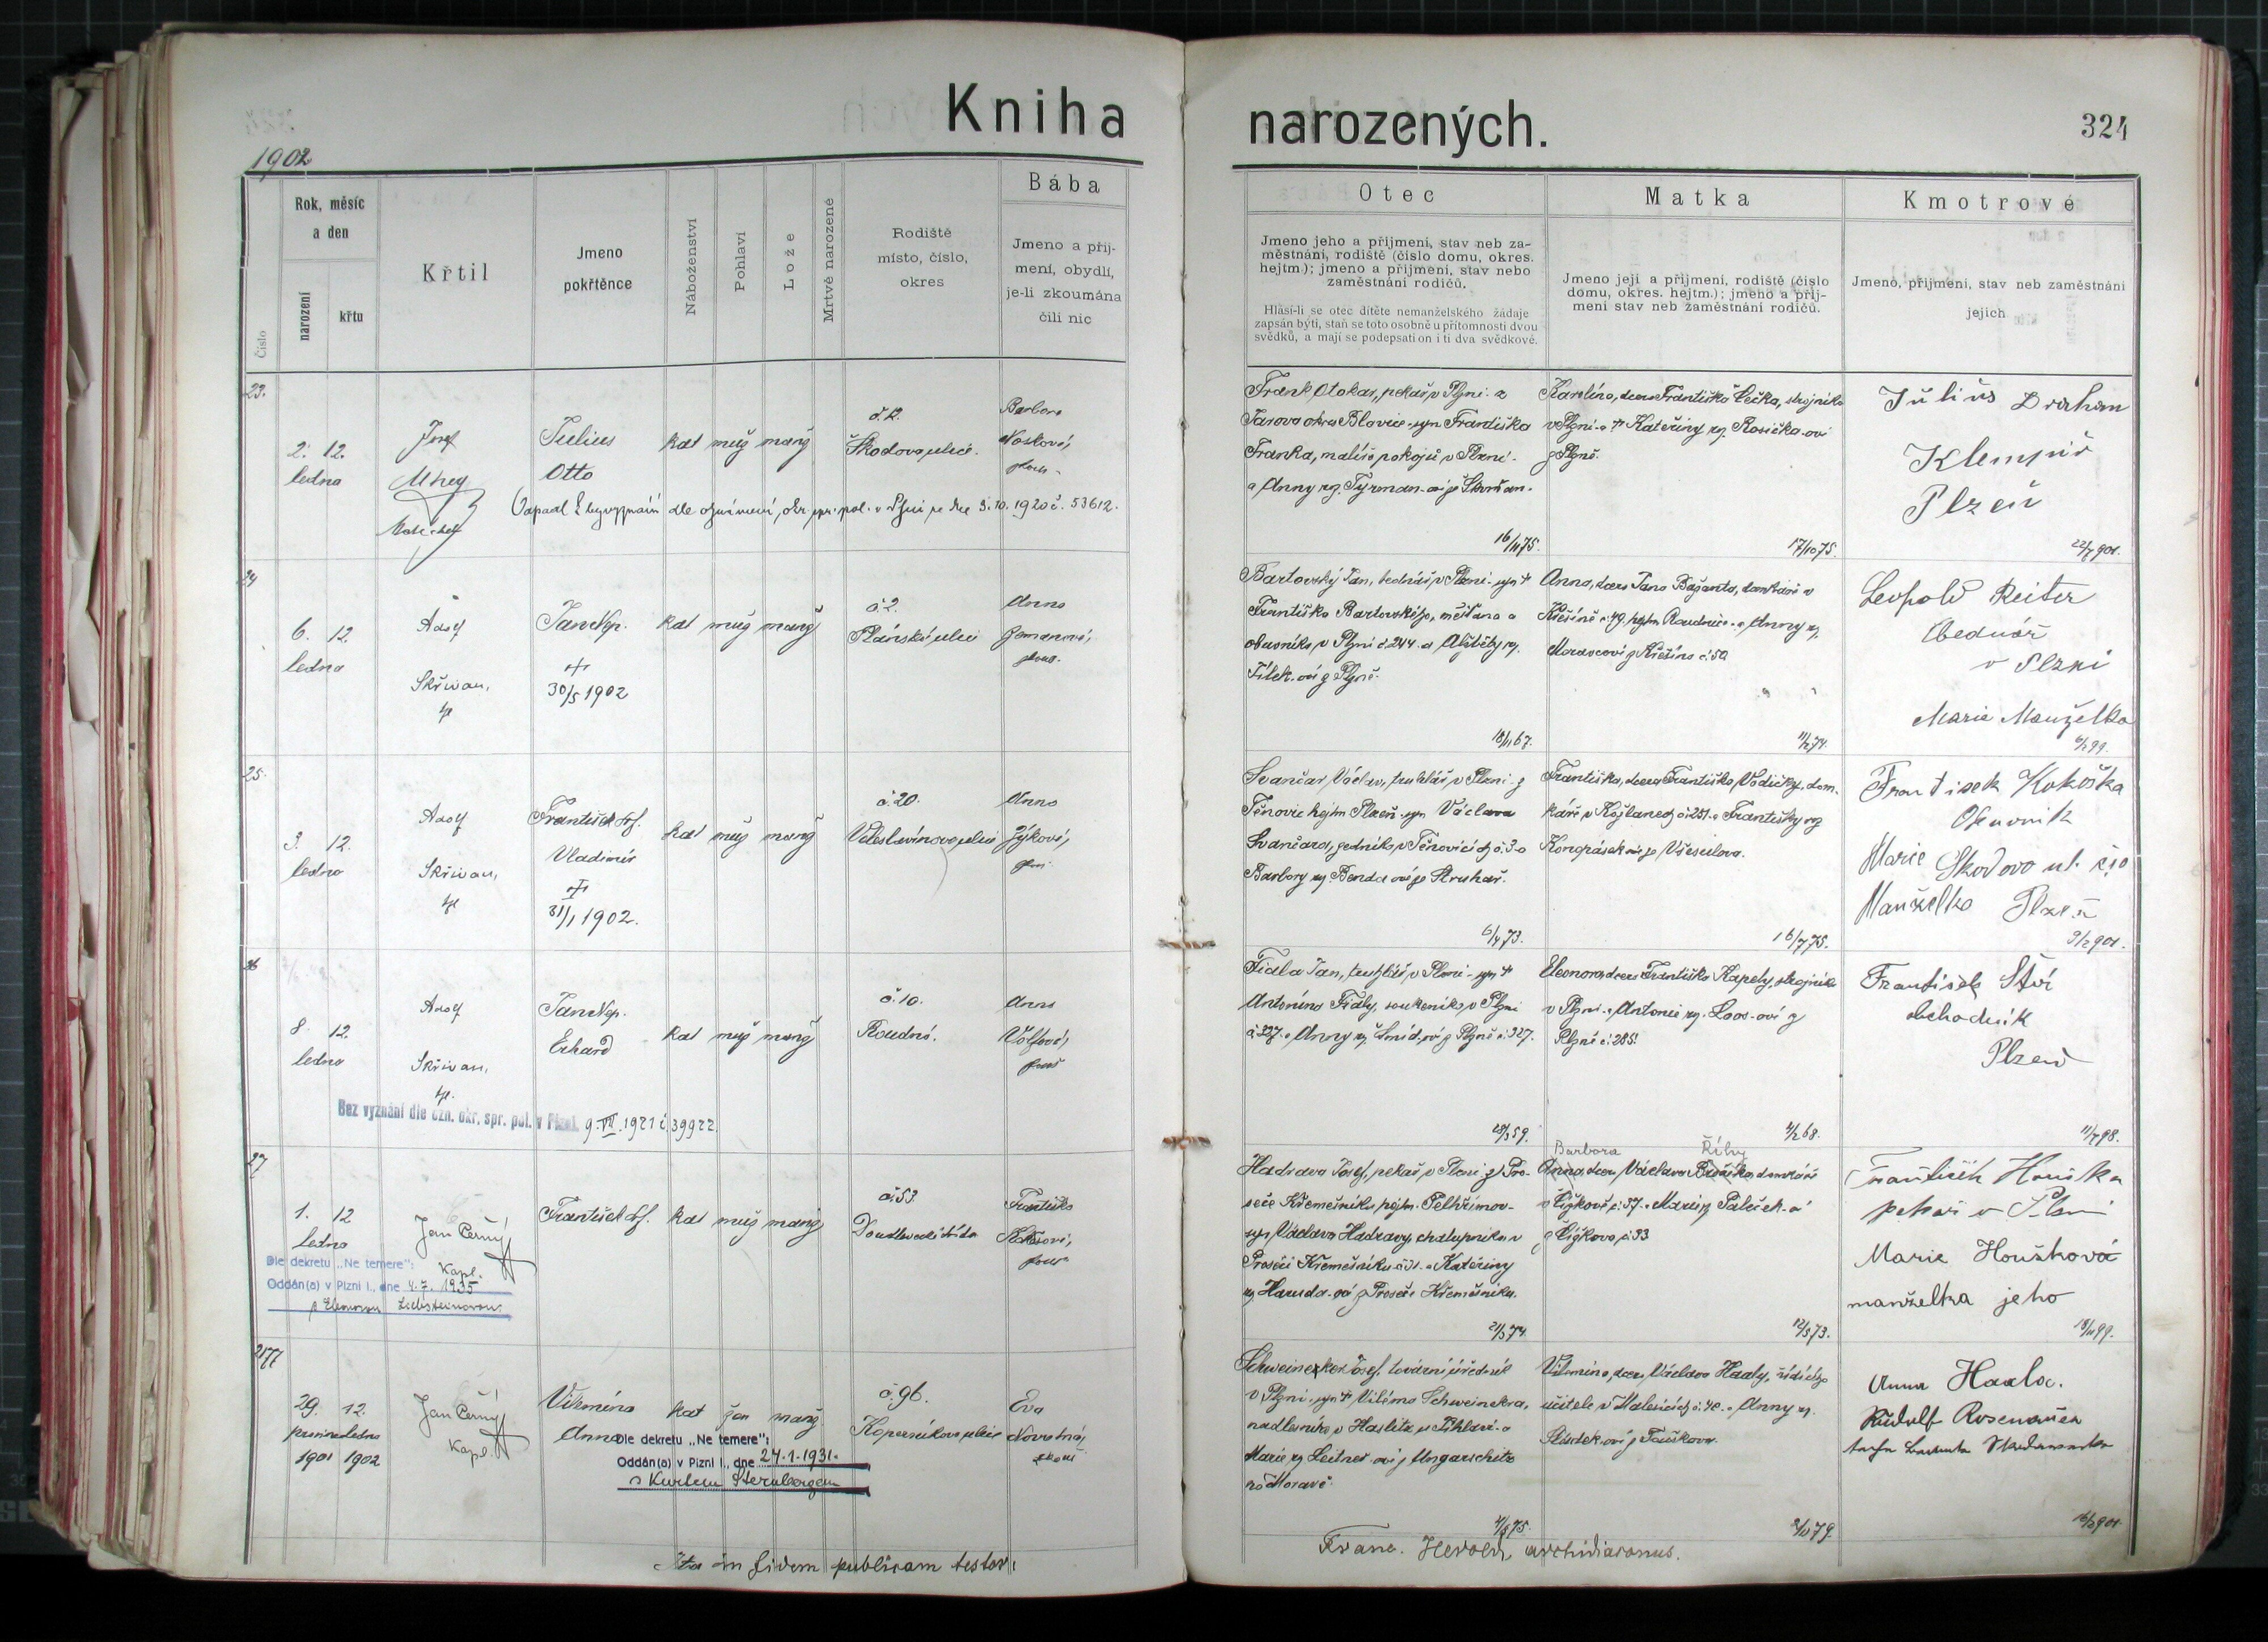 Kniha
narozených.
324
1902
Číslo
Rok, měsíc
a den
narození
křtu
Křtil
Jmeno
pokřtěnce
Náboženství
Pohlaví
Lože
Mrtvě narozené
Rodiště
místo, číslo,
okres
Bába
Jmeno a příj-
mení, obydlí,
je-li zkoumána
čili nic
Otec
Jmeno jeho a příjmení, stav neb za-
městnání, rodiště (číslo domu, okres.
hejtm.); jmeno a příjmení, stav nebo
zaměstnání rodičů.
Hlásí-li se otec dítěte nemanželského žádaje
zapsán býti, staň se toto osobně u přítomnosti dvou
svědků, a mají se podepsati on i ti dva svědkové.
Matka
Jmeno její a příjmení, rodiště (číslo
domu, okres. hejtm.); jmeno a příj-
mení stav neb zaměstnání rodičů.
Kmotrové
Jmeno, příjmení, stav neb zaměstnání
jejich
23.
2. 12.
ledna
Josef
Julius
Otto
kat muž manž
č. 12.
Škodova ulice.
Barbora
Nosková,
Odpadl dle oznámení okr. spr. pol. v Plzni ze dne 3. 10. 1920 č. 53612.
Frank Otokar, pekař v Plzni z
okres Blovice syn Františka
Franka, malíře pokojů v Plzni
a Anny roz.
16/11 75.
Karolína, dcera Františka Lečka, strojníka
v Plzni a † Kateřiny roz. Rosička-ovi
z Plzně.
17/10 75.
Július Draham
Klempíř
Plzeň
22/7 901.
24
6. 12.
ledna
Adolf
Skřivan,
Jan Nep.
†
30/5 1902
kat muž manž
č. 2.
Plánská ulice
Anna
Zemanová,
Bartovský Jan, bednář v Plzni syn †
Františka Bartovského, měšťana a
obuvníka v Plzni č. 244 a Alžběty roz.
Fílek-ovi z Plzně.
18/11 67.
Anna, dcera Jana Bažanta, domkáře v
č. 49, hejtm. Roudnice a Anny roz.
Moravcovi z č. 50
11/2 74.
Leopold Reiter
bednář
v Plzni
Marie Manželka
6/2 99.
25.
3. 12.
ledna
Adolf
Skřivan,
František Jos.
Vladimír
†
31/1 1902.
kat muž manž
č. 20.
Veleslavínova ulice
Anna
Zýková,
Švančar Václav, truhlář v Plzni z
Těnovic hejtm. Plzeň syn Václava
Švančara, sedníka v Těnovicích č. 3 a
Barbory roz. Benda ovi ze Struhař.
6/4 73.
Františka, dcera Františka Vodičky, dom-
káře v Kožlanech č. 251 a Františky roz
ze Všesulova.
16/7 75.
František Kokoška
Obuvník
Marie Škodova ul. č. 10
Manželka Plzeň
3/2 901.
26
8. 12.
ledna
Adolf
Skřivan,
Jan Nep.
Erhard
kat muž manž
č. 10.
Roudná.
Anna
Volfová,
Bez vyznání dle ozn. okr. spr. pol. v Plzni. 9. VIII. 1921 č. 39922.
Fiala Jan, truhlář v Plzni syn †
Antonína Fialy, soukeníka v Plzni
č. 327 a Anny roz. Šmíd-ovi z Plzně č. 327.
28/3 59.
Eleonora, dcera Františka Kapely, strojníka
v Plzni a Antonie roz. Loos-ovi z
Plzně č. 285.
4/2 68.
František
obchodník
Plzeň
11/7 98.
27
1. 12
ledna
Jan Černý
Kapl.
František Jos.
kat muž manž
č. 53.
Doudlevecká třída
Františka
Dle dekretu „Ne temere":
Oddán(a) v Plzni I., dne 4. 7. 1935
s Eleonorou Lichsteinovou.
Hadrava Josef, pekař v Plzni z Pro-
seče Křemešníka hejtm. Pelhřimov
syn Václava Hadravy, chalupníka v
Proseči Křemešníku č. 31 a Kateřiny
roz. Harud a-ovi z Proseče Křemešníku.
21/3 74.
Barbora
Říhy
Anna, dcera Václava domkáře
v Čížkově č. 37 a Marie roz Paleček-ovi
z Čížkova č. 33
12/5 73.
František Houška
pekař v Plzni
Marie Houšková
manželka jeho
18/11 99.
29. 12.
prosince ledna
1901 1902
Jan Černý
Kapl.
Vilemína
Anna
kat žen manž.
č. 96.
Koperníkova ulice
Eva
Novotná,
Dle dekretu „Ne temere":
Oddán(a) v Plzni I., dne 24. 1. 1931.
s Kurtem Sternbergem
Schweineker Josef, tovární úředník
v Plzni, syn † Viléma Schweinekra,
nadlesního v Haslitz u Jihlavi a
Marie roz Leitner-ovi z Ungarschitz
na Moravě.
4/8 75.
Vilemína, dcera Václava Haaly, řídícího
učitele v Malesicích č. 40 a Anny roz.
z Touškova.
2/11 79.
Anna Haala.
Rudolf Rosenauer
16/2 901.
Ita in fidem publicam testor:
Franc. Herold, archidiaconus.